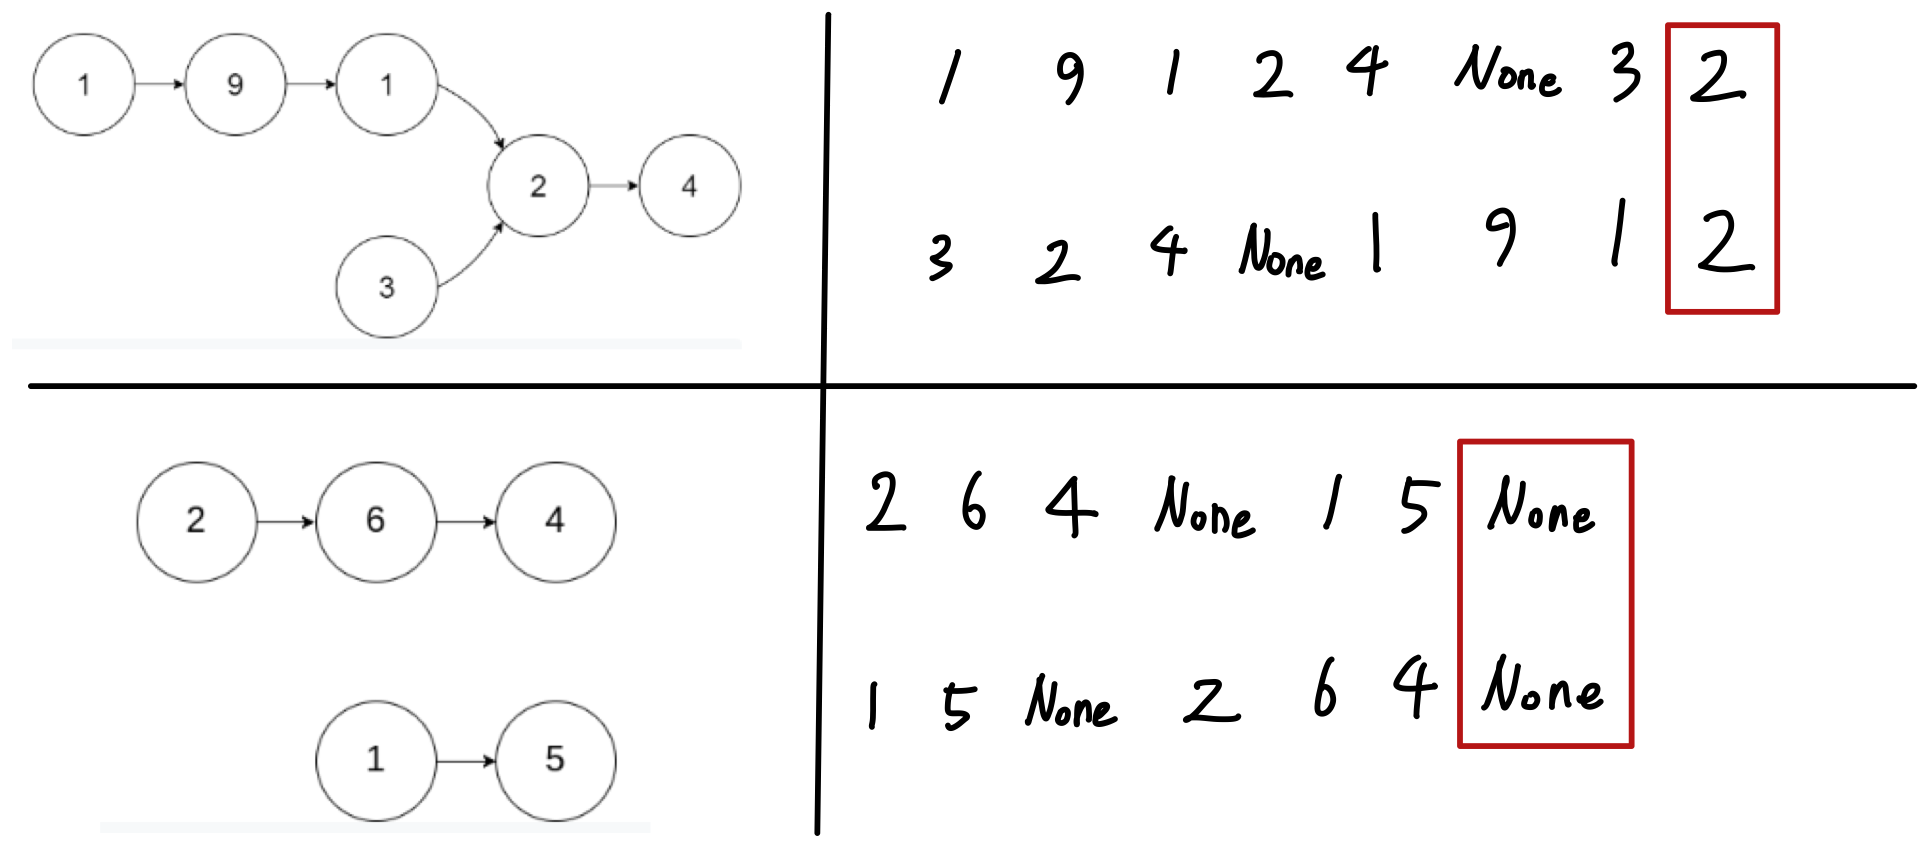 1 9 1
2 4
3
1 9 1 2 4 None 3 2
3 2 4 None 1 9 1 2
2 6 4
1 5
2 6 4 None 1 5 None
1 5 None 2 6 4 None